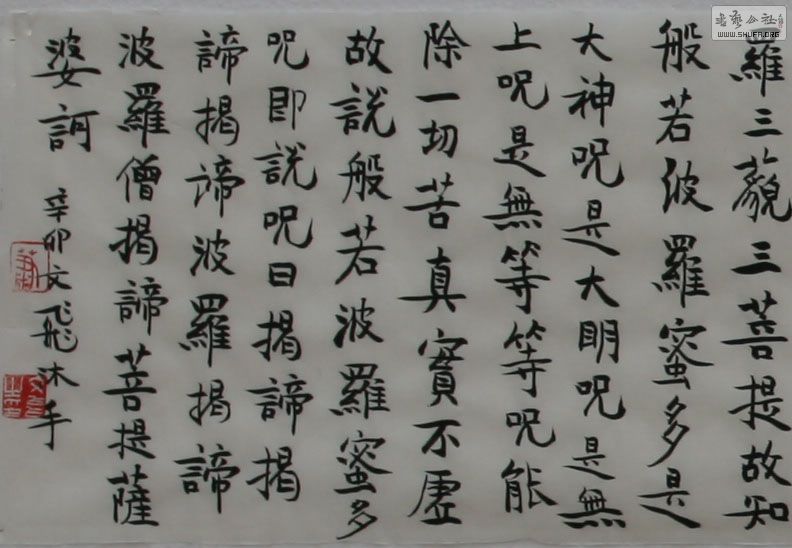 羅三藐三菩提故知
般若波羅蜜多是
大神呪是大明呪是無
上呪是無等等呪能
除一切苦真實不虛
故說般若波羅蜜多
呪即說呪曰揭諦揭
諦揭諦波羅揭諦
波羅僧揭諦菩提薩
婆訶
辛卯文飛沐手
書艺公社
WWW.SHUFA.ORG